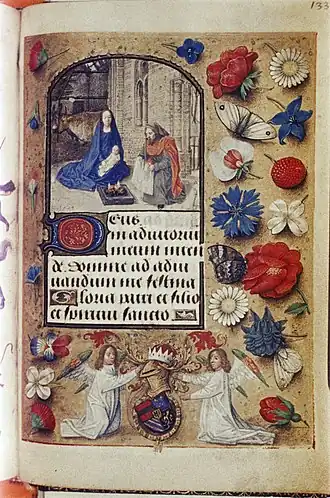 133
Deus in ad
in adiutoriu
meum inten
de Domine ad adiu
uandum me festina
Gloria patri et filio
et spiritui sancto